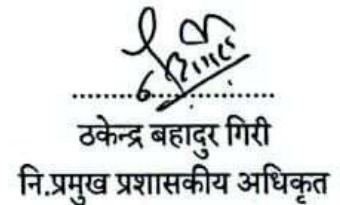 ठकेन्द्र बहादुर गिरी
नि.प्रमुख प्रशासकीय अधिकृत